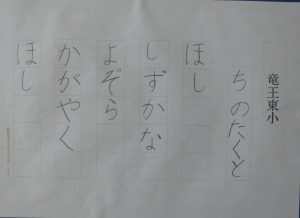 竜王東小
ちのたくと
ほし
しずかな
よぞら
かがやく
ほし